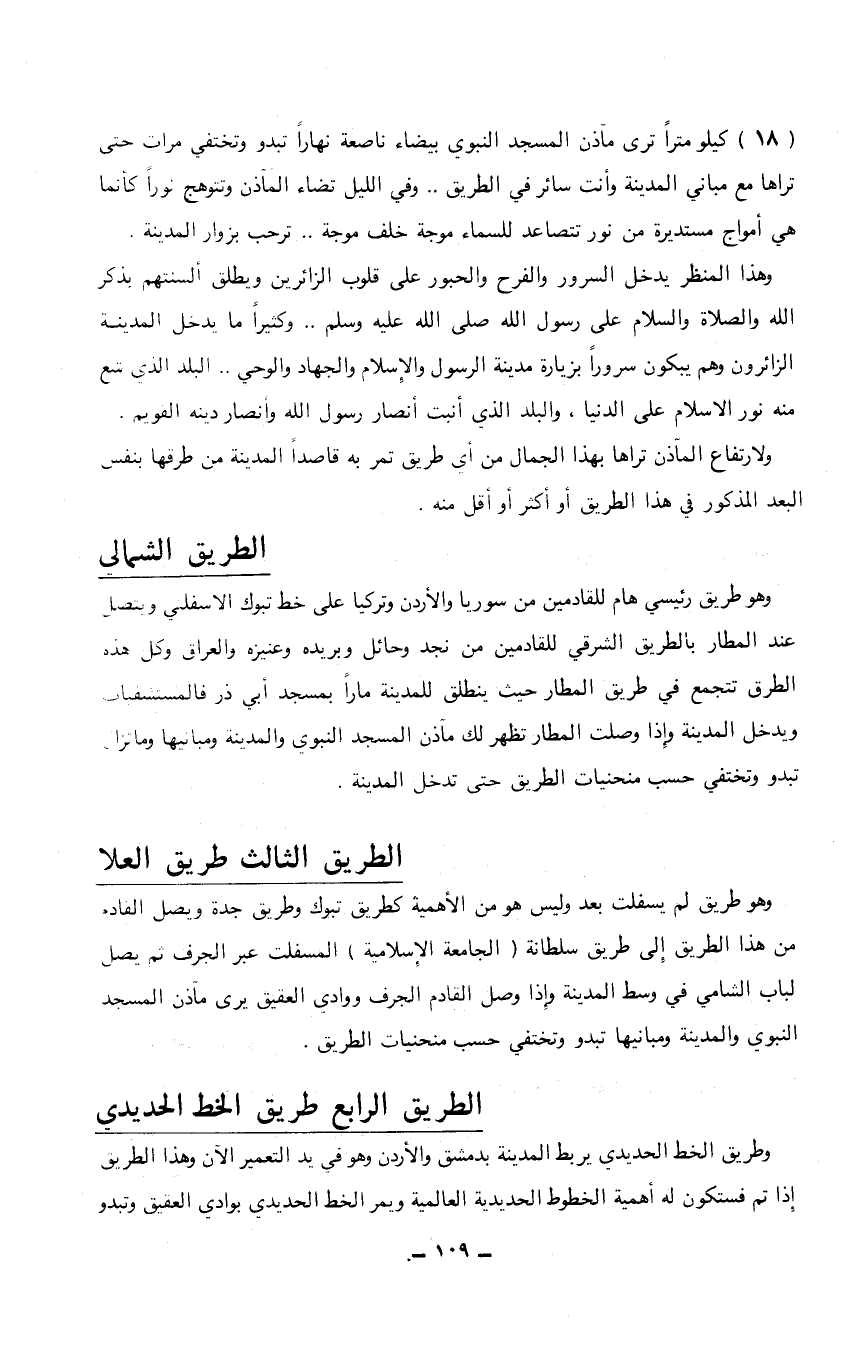 ( ١٨ ) كيلو متراً ترى مآذن المسجد النبوي بيضاء ناصعة نهاراً تبدو وتختفي مرات حتى
تراها مع مباني المدينة وأنت سائر في الطريق .. وفي الليل تضاء المآذن وتتوهج نوراً كأنما
هي أمواج مستديرة من نور تتصاعد للسماء موجة خلف موجة .. ترحب بزوار المدينة .
وهذا المنظر يدخل السرور والفرح والحبور على قلوب الزائرين ويطلق ألسنتهم بذكر
الله والصلاة والسلام على رسول الله صلى الله عليه وسلم .. وكثيراً ما يدخل المدينة
الزائرون وهم يبكون سروراً بزيارة مدينة الرسول والإسلام والجهاد والوحي .. البلد الذي شع
منه نور الاسلام على الدنيا ، والبلد الذي أنبت أنصار رسول الله وأنصار دينه القويم .
ولارتفاع المآذن تراها بهذا الجمال من أي طريق تمر به قاصداً المدينة من طرقها بنفس
البعد المذكور في هذا الطريق أو أكثر أو أقل منه .
الطريق الشمالى
وهو طريق رئيسي هام للقادمين من سوريا والأردن وتركيا على خط تبوك الاسفلتي ويتصل
عند المطار بالطريق الشرقي للقادمين من نجد وحائل وبريده وعنيزه والعراق وكل هذه
الطرق تتجمع في طريق المطار حيث ينطلق للمدينة ماراً بمسجد أبي ذر فالمستشفيات
ويدخل المدينة وإذا وصلت المطار تظهر لك مآذن المسجد النبوي والمدينة ومبانيها وماتزال
تبدو وتختفي حسب منحنيات الطريق حتى تدخل المدينة .
الطريق الثالث طريق العلا
وهو طريق لم يسفلت بعد وليس هو من الأهمية كطريق تبوك وطريق جدة ويصل القادم
من هذا الطريق إلى طريق سلطانة ( الجامعة الإسلامية ) المسفلت عبر الجرف ثم يصل
لباب الشامي في وسط المدينة وإذا وصل القادم الجرف ووادي العقيق يرى مآذن المسجد
النبوي والمدينة ومبانيها تبدو وتختفي حسب منحنيات الطريق .
الطريق الرابع طريق الخط الحديدي
وطريق الخط الحديدي يربط المدينة بدمشق والأردن وهو في يد التعمير الآن وهذا الطريق
إذا تم فستكون له أهمية الخطوط الحديدية العالمية ويمر الخط الحديدي بوادي العقيق وتبدو
ــ ١٠٩ ــ